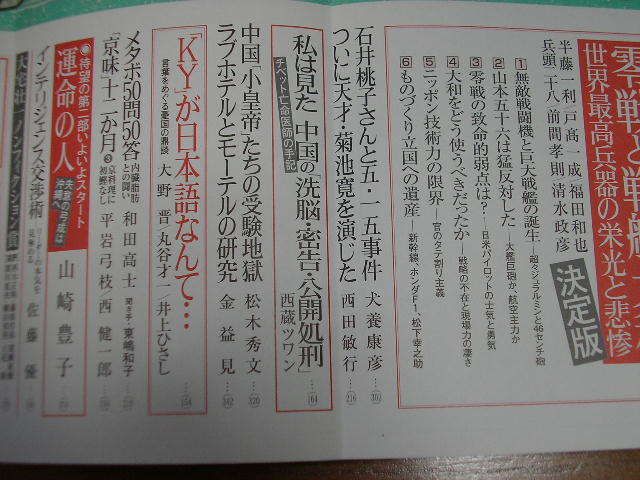 零戦と戦艦大和
世界最高兵器の栄光と悲惨
決定版
半藤一利 戸髙一成 福田和也
兵頭二十八 前間孝則 清水政彦
1 無敵戦闘機と巨大戦艦の誕生―超々ジュラルミンと46センチ砲
2 山本五十六は猛反対した―大艦巨砲か、航空主力か
3 零戦の致命的弱点は?―日米パイロットの士気と勇気
4 大和をどう使うべきだったか―戦略の不在と現場力の凄さ
5 ニッポン技術力の限界―官のタテ割り主義
6 ものづくり立国への遺産―新幹線、ホンダF1、松下幸之助
石井桃子さんと五・一五事件 犬養康彦…302
ついに天才・菊池寛を演じた 西田敏行…216
私は見た 中国の洗脳・密告・公開処刑」
チベット亡命医師の手記
西蔵ツワン…164
中国「小皇帝」たちの受験地獄 松木秀文…320
ラブホテルとモーテルの研究 金益見…342
「KY」が日本語なんて…
言葉をめぐる憂国の鼎談 大野晋/丸谷才一/井上ひさし…154
メタボ50問50答 内臓脂肪との闘い 和田高士 聞き手 東嶋和子
「京味」十二か月 3 京料理に初鰹なし 平岩弓枝・西健一郎
●待望の第二部いよいよスタート
運命の人
山崎豊子
インテリジェンス交渉術
佐藤優